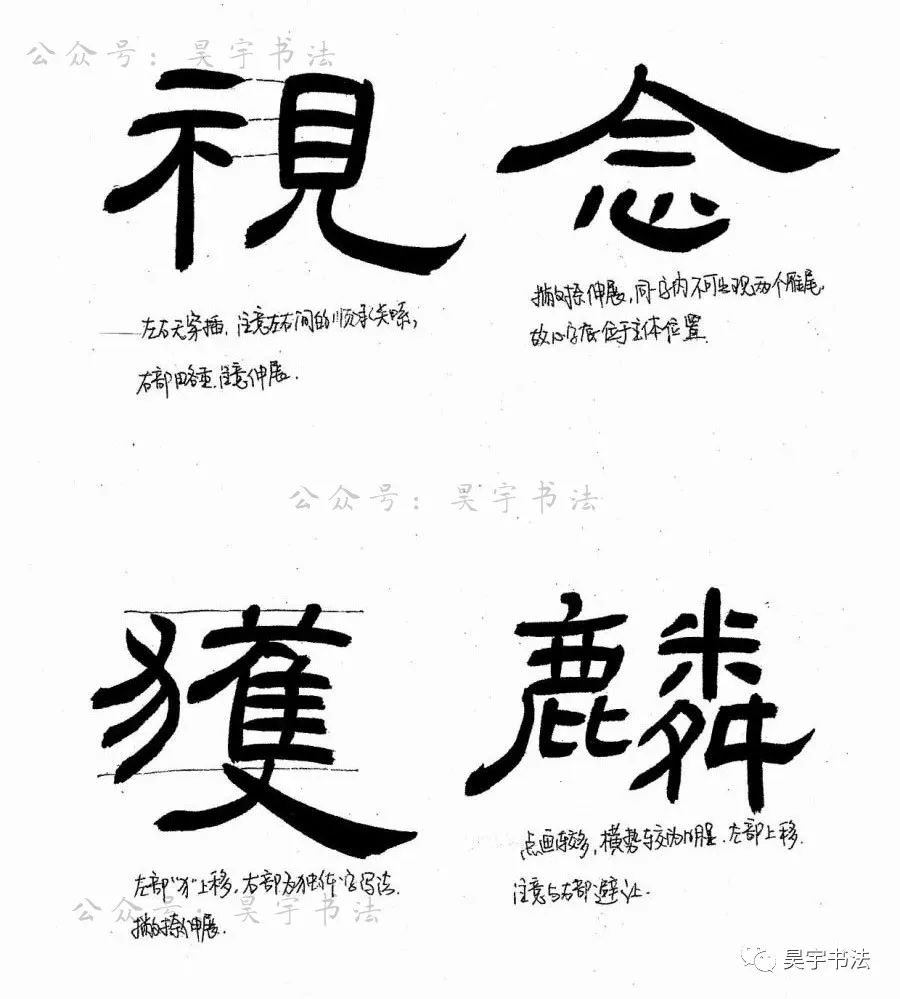 公众号：昊宇书法
視
念
左右无穿插，注意左右间的顺承关系，
右部略重，注意伸展.
撇捺伸展，同字内不可出现两个雁尾，
故心字底位于主体位置.
公众号：昊宇书法
獲
麟
左部“犭”上移，右部为独体字写法.
撇捺伸展.
点画较多，横势较为明显，左部上移.
注意与右部避让.
公众号：昊宇书法
昊宇书法